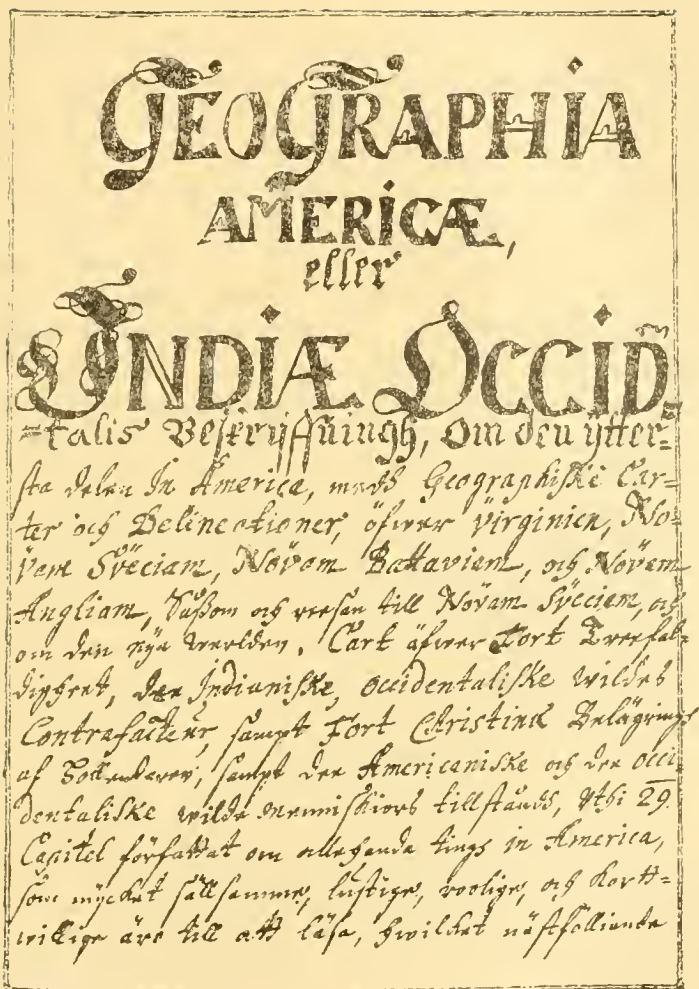 GEOGRAPHIA
AMERICÆ,
eller
INDIÆ OCCID=
=talis Beskrijffningh, Om den ytter=
sta delen In America, medh Geographiske Car=
ter och Delineationer, öfwer Virginien, No=
vam Sveciam, Novam Battaviam, och Novam
Angliam, Såßom och reesan till Novam Sveciam, och
om den nya werlden. Cart äfwer Fort Trefal=
dighet, dee Indianiske, Occidentaliske wildes
Contrafacteur, sampt Fort Christinæ Belägrings
af Hollendaren, sampt dee Americaniske och dee occi=
dentaliske wilde menniskiors tillståndh, Uthi 29.
Capitel författat om allehanda tings in America,
som mycket sällsamme, lustige, roolige, och kortt=
willige äre till att läsa, hwilcket näst följiande